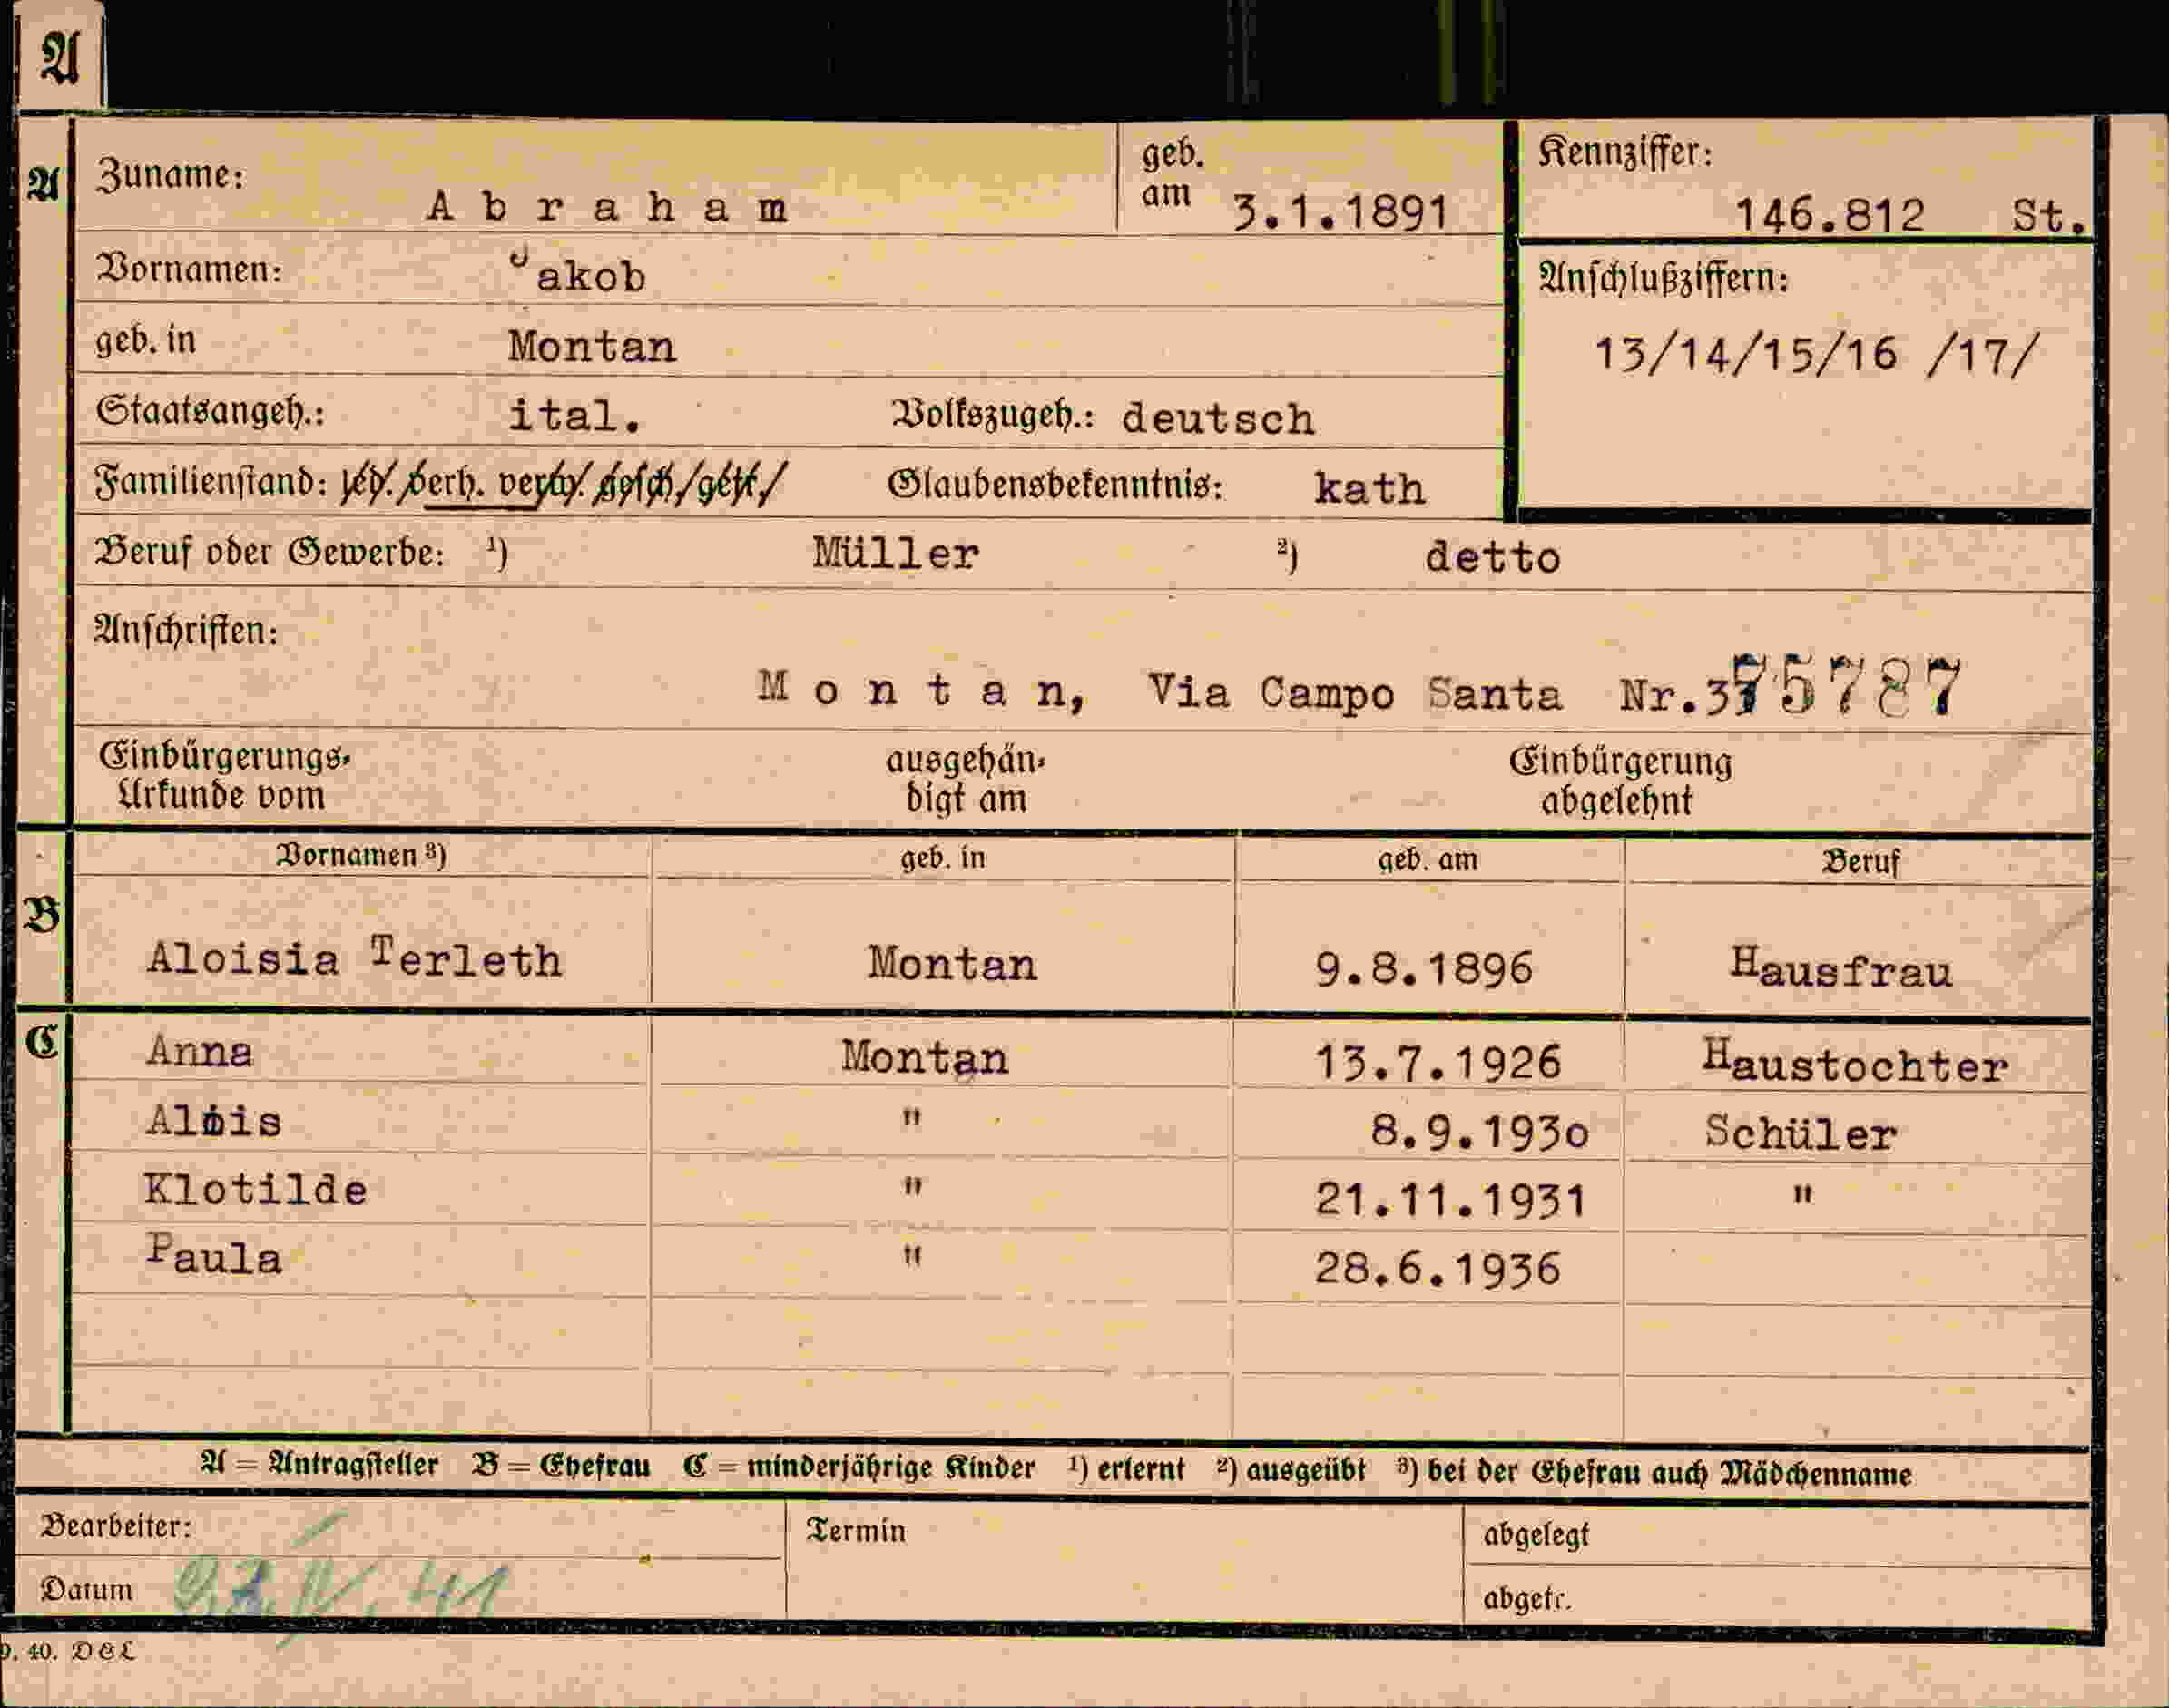 A
A Zuname: Abraham geb. am 3.1.1891 Kennziffer: 146.812 St.
Vornamen: Jakob Anschlußziffern:
geb. in Montan 13/14/15/16 /17/
Staatsangeh.: ital. Volkszugeh.: deutsch
Familienstand: led. verh. verw. gesch. getr. Glaubensbekenntnis: kath
Beruf oder Gewerbe: ¹) Müller ²) detto
Anschriften:
Montan, Via Campo Santa Nr.3 75787
Einbürgerungs- ausgehän- Einbürgerung
Urkunde vom digt am abgelehnt
Vornamen ³) geb. in geb. am Beruf
B
Aloisia Terleth Montan 9.8.1896 Hausfrau
C Anna Montan 13.7.1926 Haustochter
Alois " 8.9.1930 Schüler
Klotilde " 21.11.1931 "
Paula " 28.6.1936
A = Antragsteller B = Ehefrau C = minderjährige Kinder ¹) erlernt ²) ausgeübt ³) bei der Ehefrau auch Mädchenname
Bearbeiter: Termin abgelegt
Datum abgetr.
40. D&L